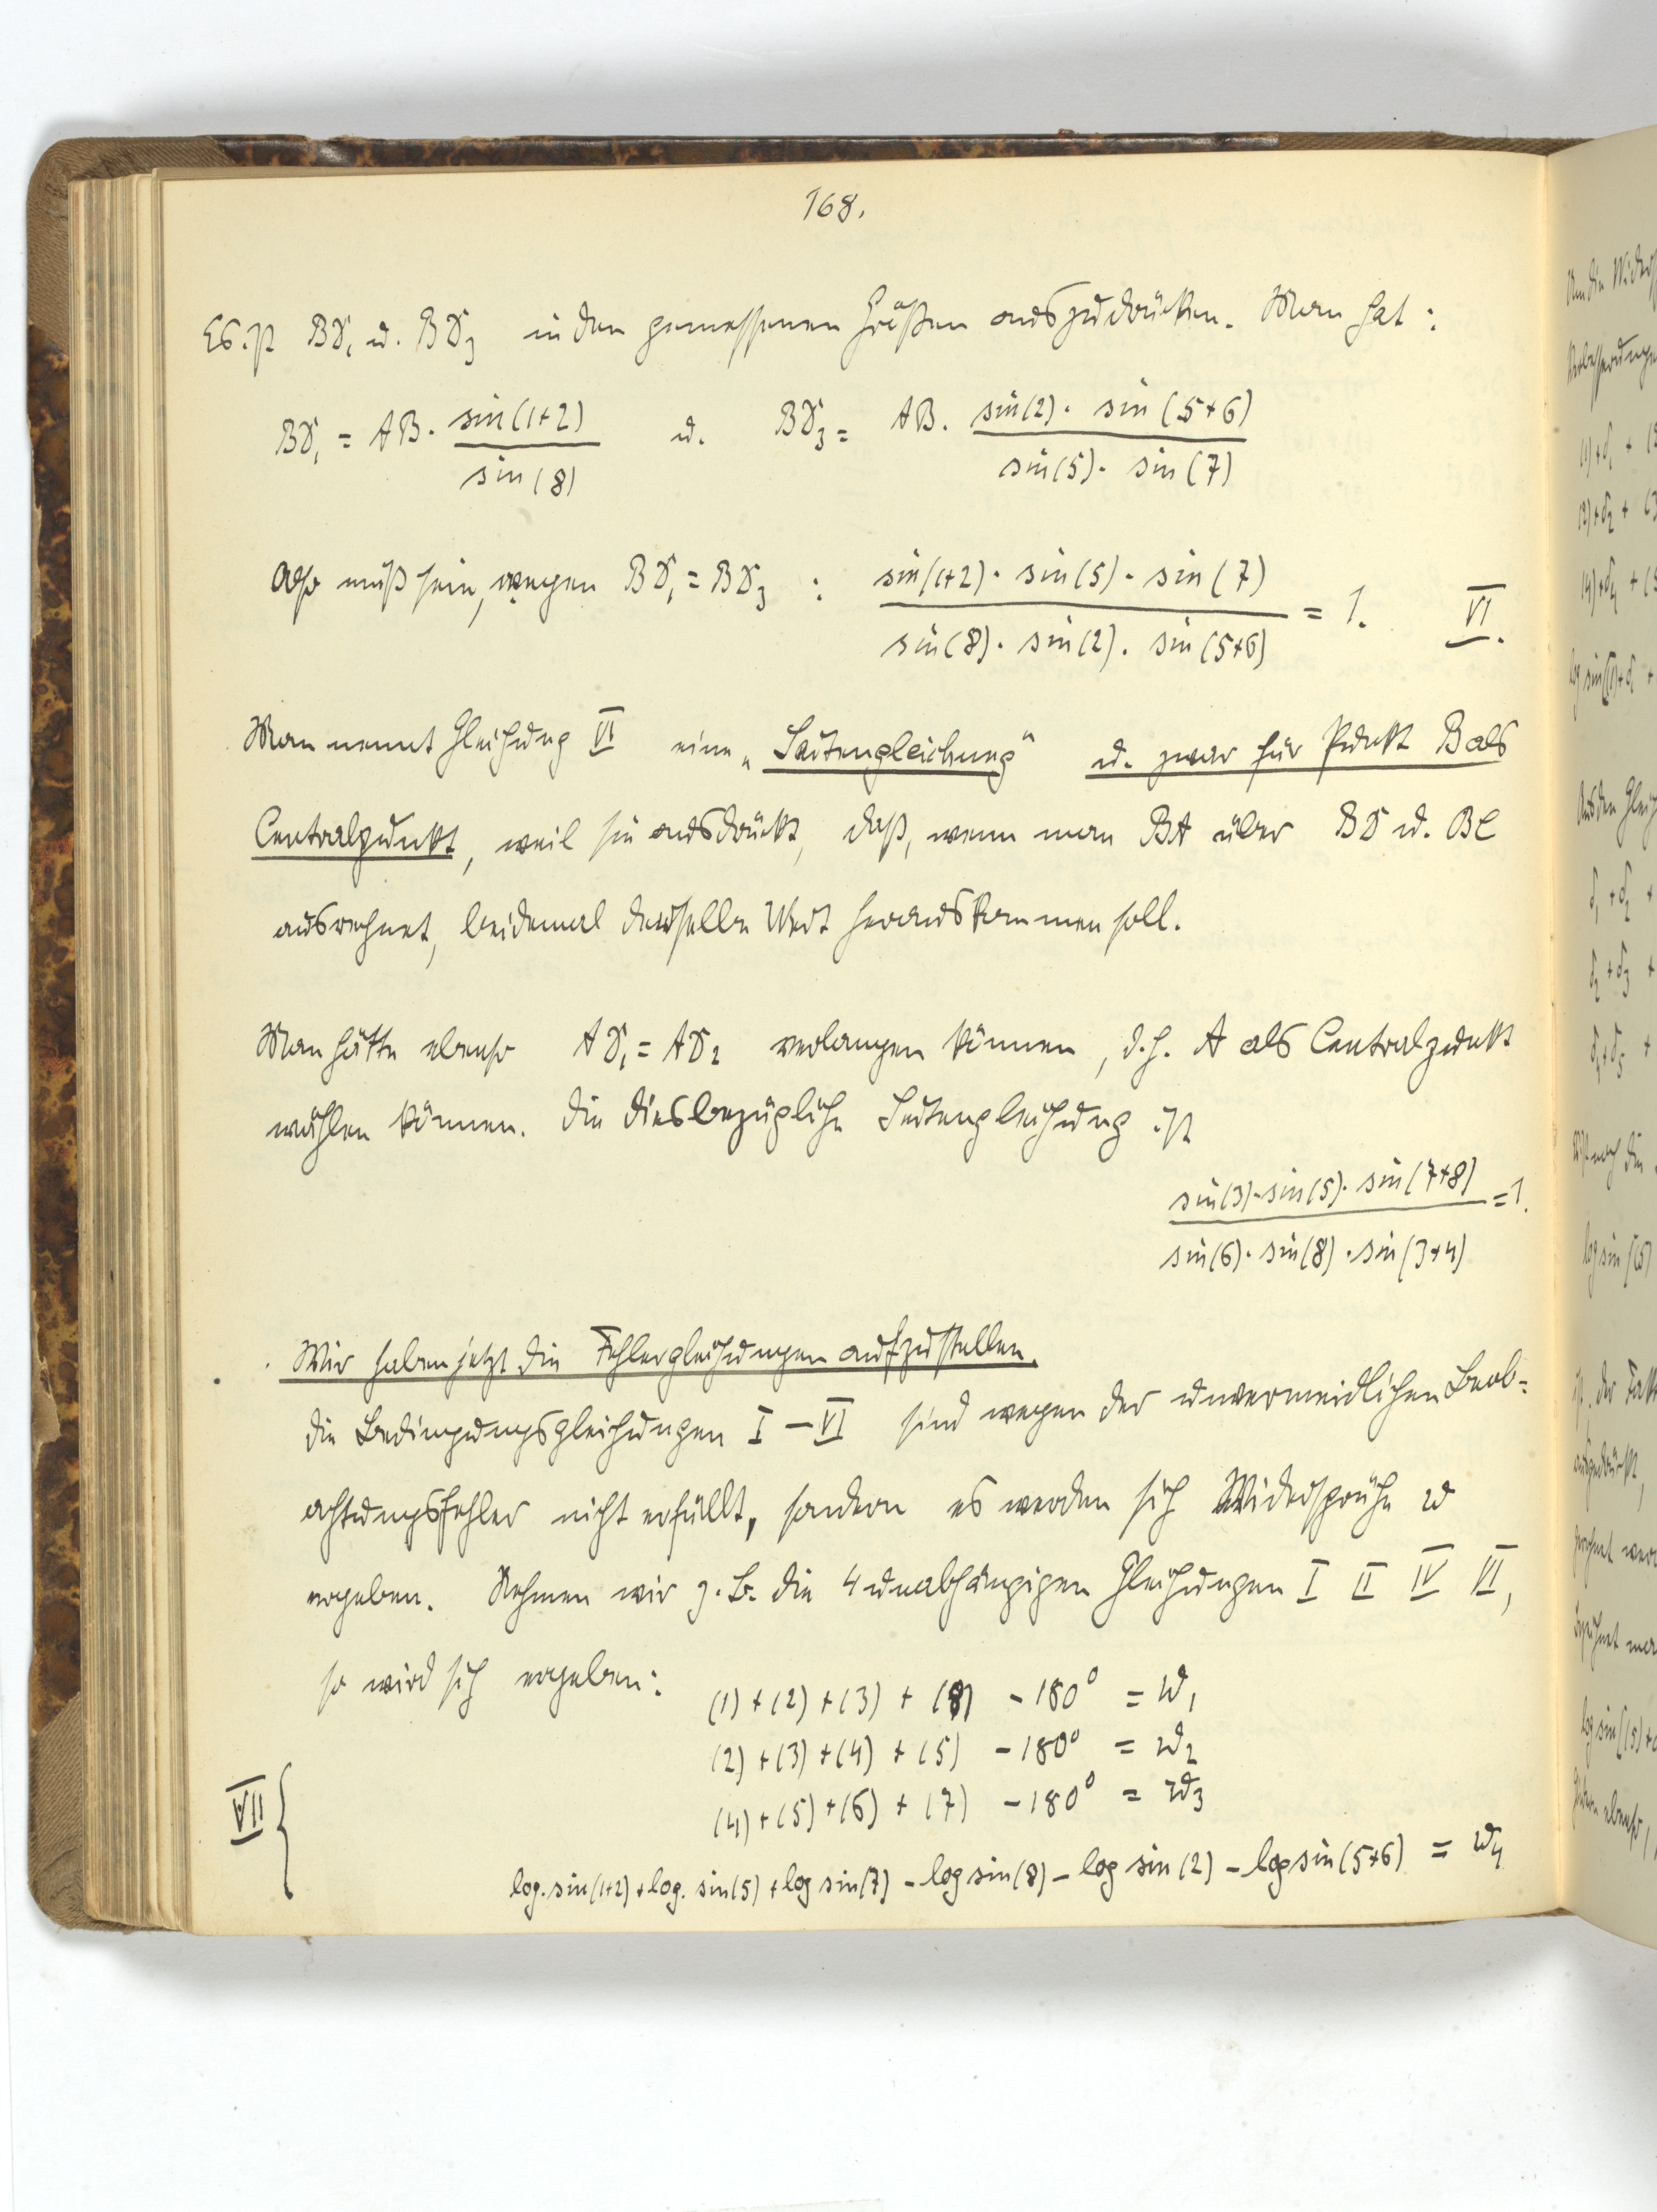 168.
Es ist BD₁ u. BD₃ in den gemessenen Größen auszudrücken. Man hat:
BD₁ = AB · sin(1+2) / sin(8) u. BD₃ = AB · sin(2) · sin(5+6) / sin(5) · sin(7)
Also muß sein, wegen BD₁ = BD₃ : sin(1+2) · sin(5) · sin(7) / sin(8) · sin(2) · sin(5+6) = 1. VI.
Man nennt Gleichung VI eine „Seitengleichung" u. zwar für Punkt B als
Centralpunkt, weil sie ausdrückt, daß, wenn man BA über BD u. BC
ausrechnet, beidemal derselbe Wert herauskommen soll.
Man hätte ebenso AD₁ = AD₂ verlangen können, d.h. A als Centralpunkt
wählen können. Die diesbezügliche Seitengleichung ist
sin(3) · sin(5) · sin(7+8) / sin(6) · sin(8) · sin(3+4) = 1.
Wir haben jetzt die Fehlergleichungen aufzustellen.
Die Bedingungsgleichungen I – VI sind wegen der unvermeidlichen Beob=
achtungsfehler nicht erfüllt, sondern es werden sich Widersprüche w
ergeben. Nehmen wir z.B. die 4 unabhängigen Gleichungen I II IV VI,
so wird sich ergeben: (1) + (2) + (3) + (8) – 180° = w₁
(2) + (3) + (4) + (5) – 180° = w₂
VII { (4) + (5) + (6) + (7) – 180° = w₃
log. sin(1+2) + log. sin(5) + log sin(7) – log sin(8) – log sin(2) – log sin(5+6) = w₄